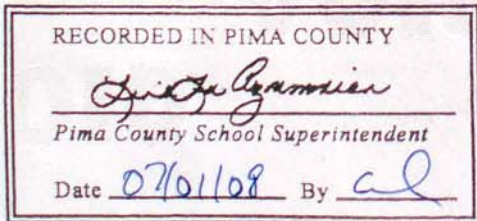 RECORDED IN PIMA COUNTY
Pima County School Superintendent
Date 07/01/08 By